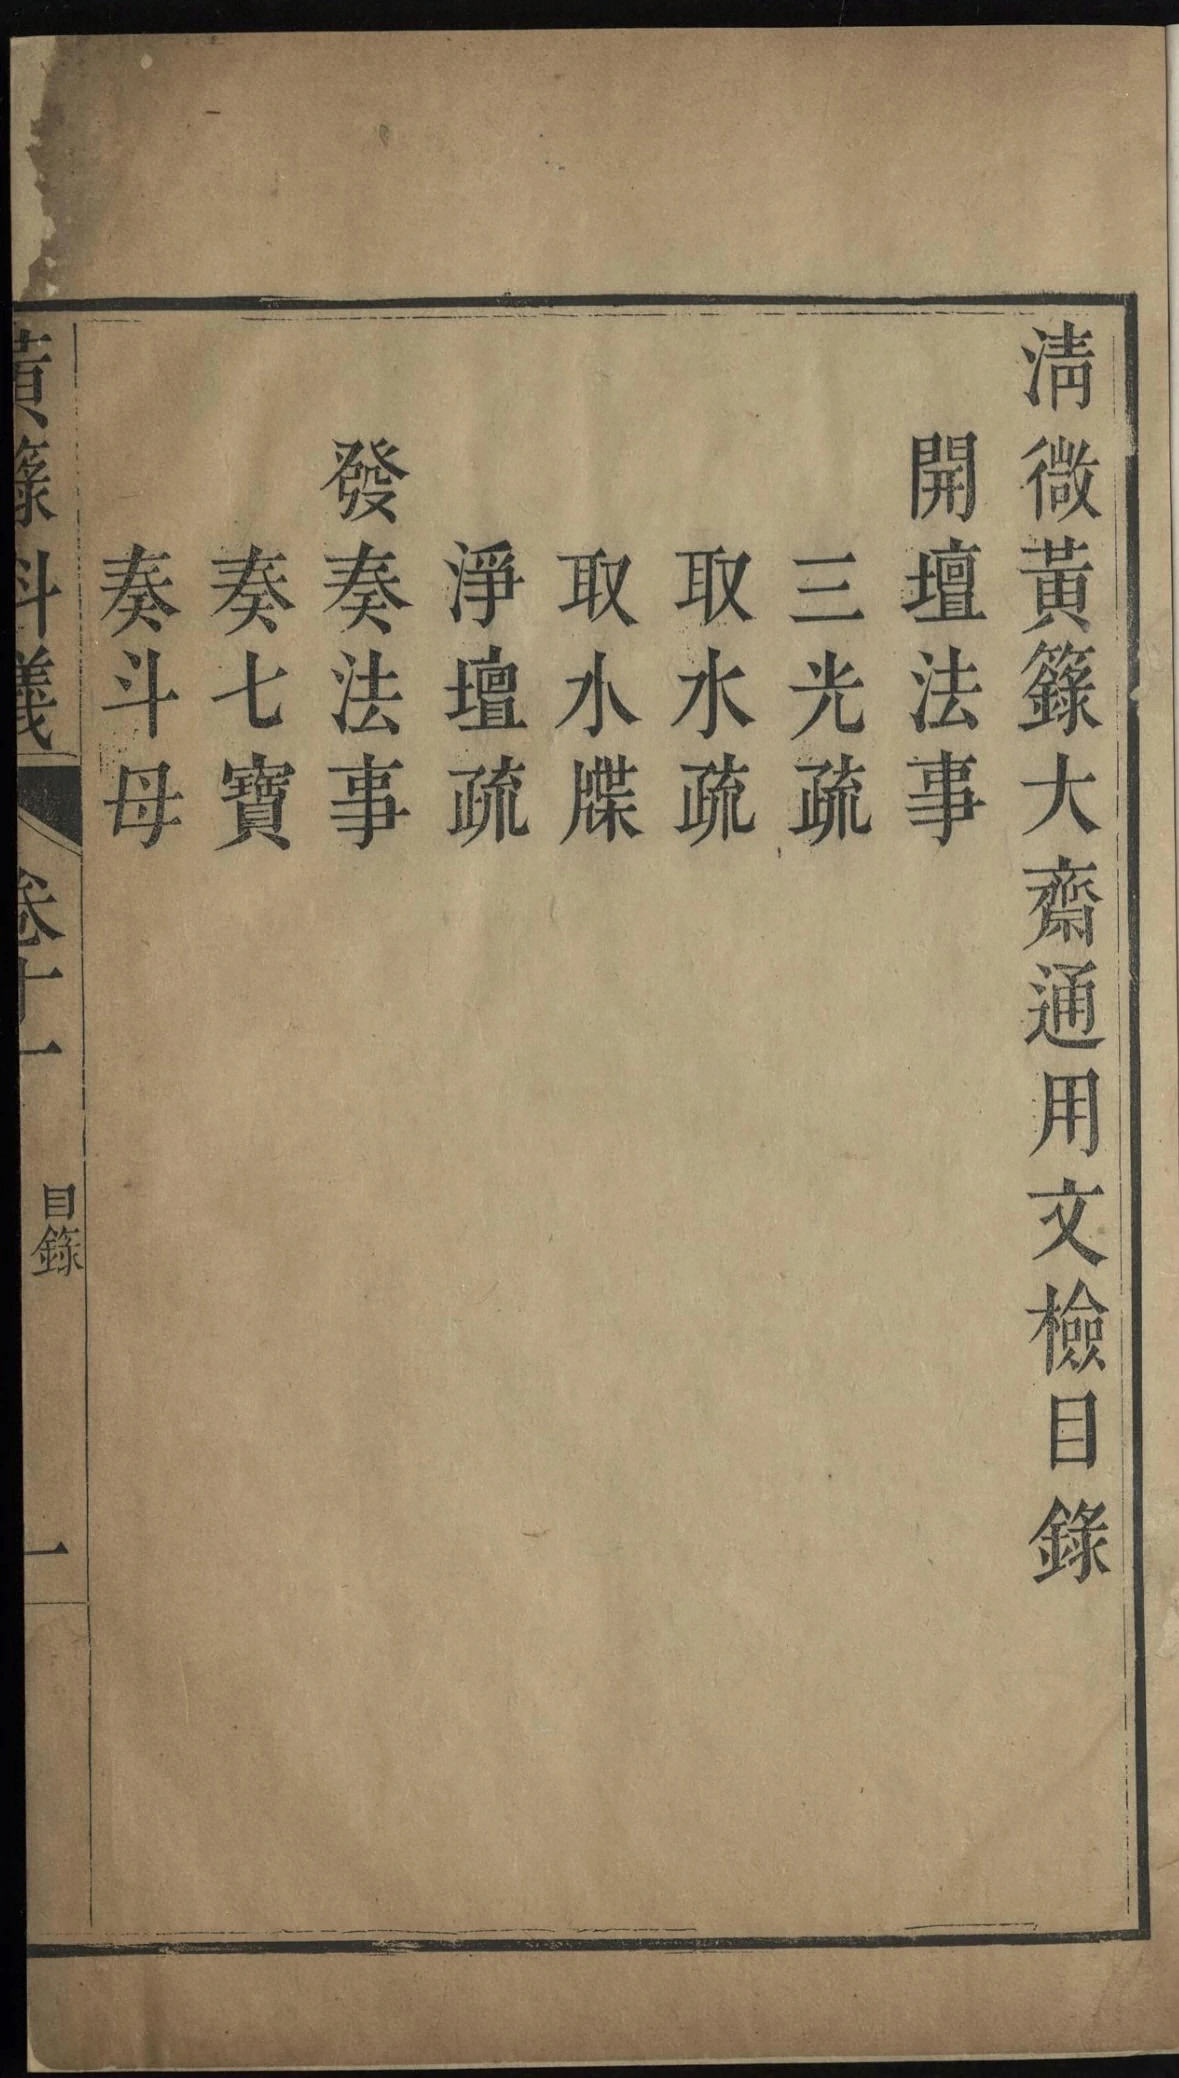 清微黃籙大齋通用文檢目錄
開壇法事
三光疏
取水疏
取水牒
淨壇疏
發奏法事
奏七寶
奏斗母
黃籙科儀
卷十一
目錄
一